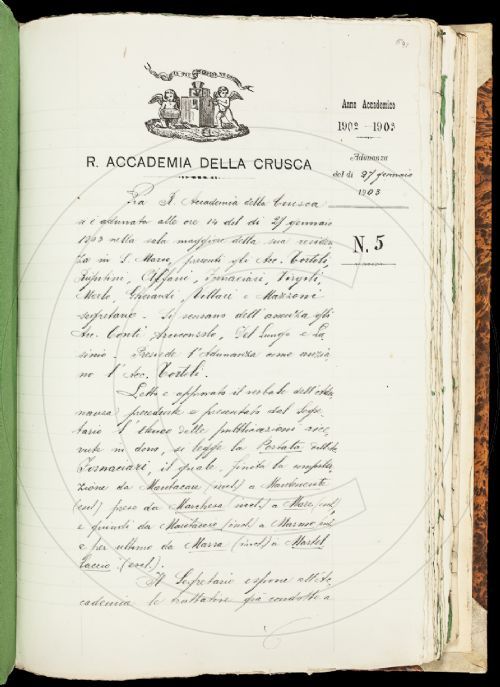 R. ACCADEMIA DELLA CRUSCA
Anno Accademico
1902 - 1903
Adunanza
del dì 27 gennaio
1903
N. 5
La R. Accademia della Crusca
si è adunata alle ore 14 del dì 27 gennaio
1903 nella sala maggiore della sua residen
za in S. Marco, presenti gli Acc. Tortoli,
Rigutini, Alfani, Fornaciari, Vergoli,
Merlo, Gherardi, Villari e Mazzoni
segretario. Si scusano dell'assenza gli
Acc. Conti Arciconsolo, Del Lungo e La
sinio. Presiede l'Adunanza come anzia
no l'Acc. Tortoli.
Letto e approvato il verbale dell'Adu
nanza precedente e presentato dal Segre
tario l'elenco delle pubblicazioni rice
vute in dono, si legge la Portata dell'Acc.
Fornaciari, il quale, finita la compila
zione da Mandacare (incl.) a Mantenente
(escl.) prese da Marchesa (incl.) a Mare (incl.)
e quindi da (incl.) a Marmo
e per ultimo da Marra (incl.) a Martel
laccio (escl.).
Il Segretario espone all'Ac
cademia le trattative già condotte a